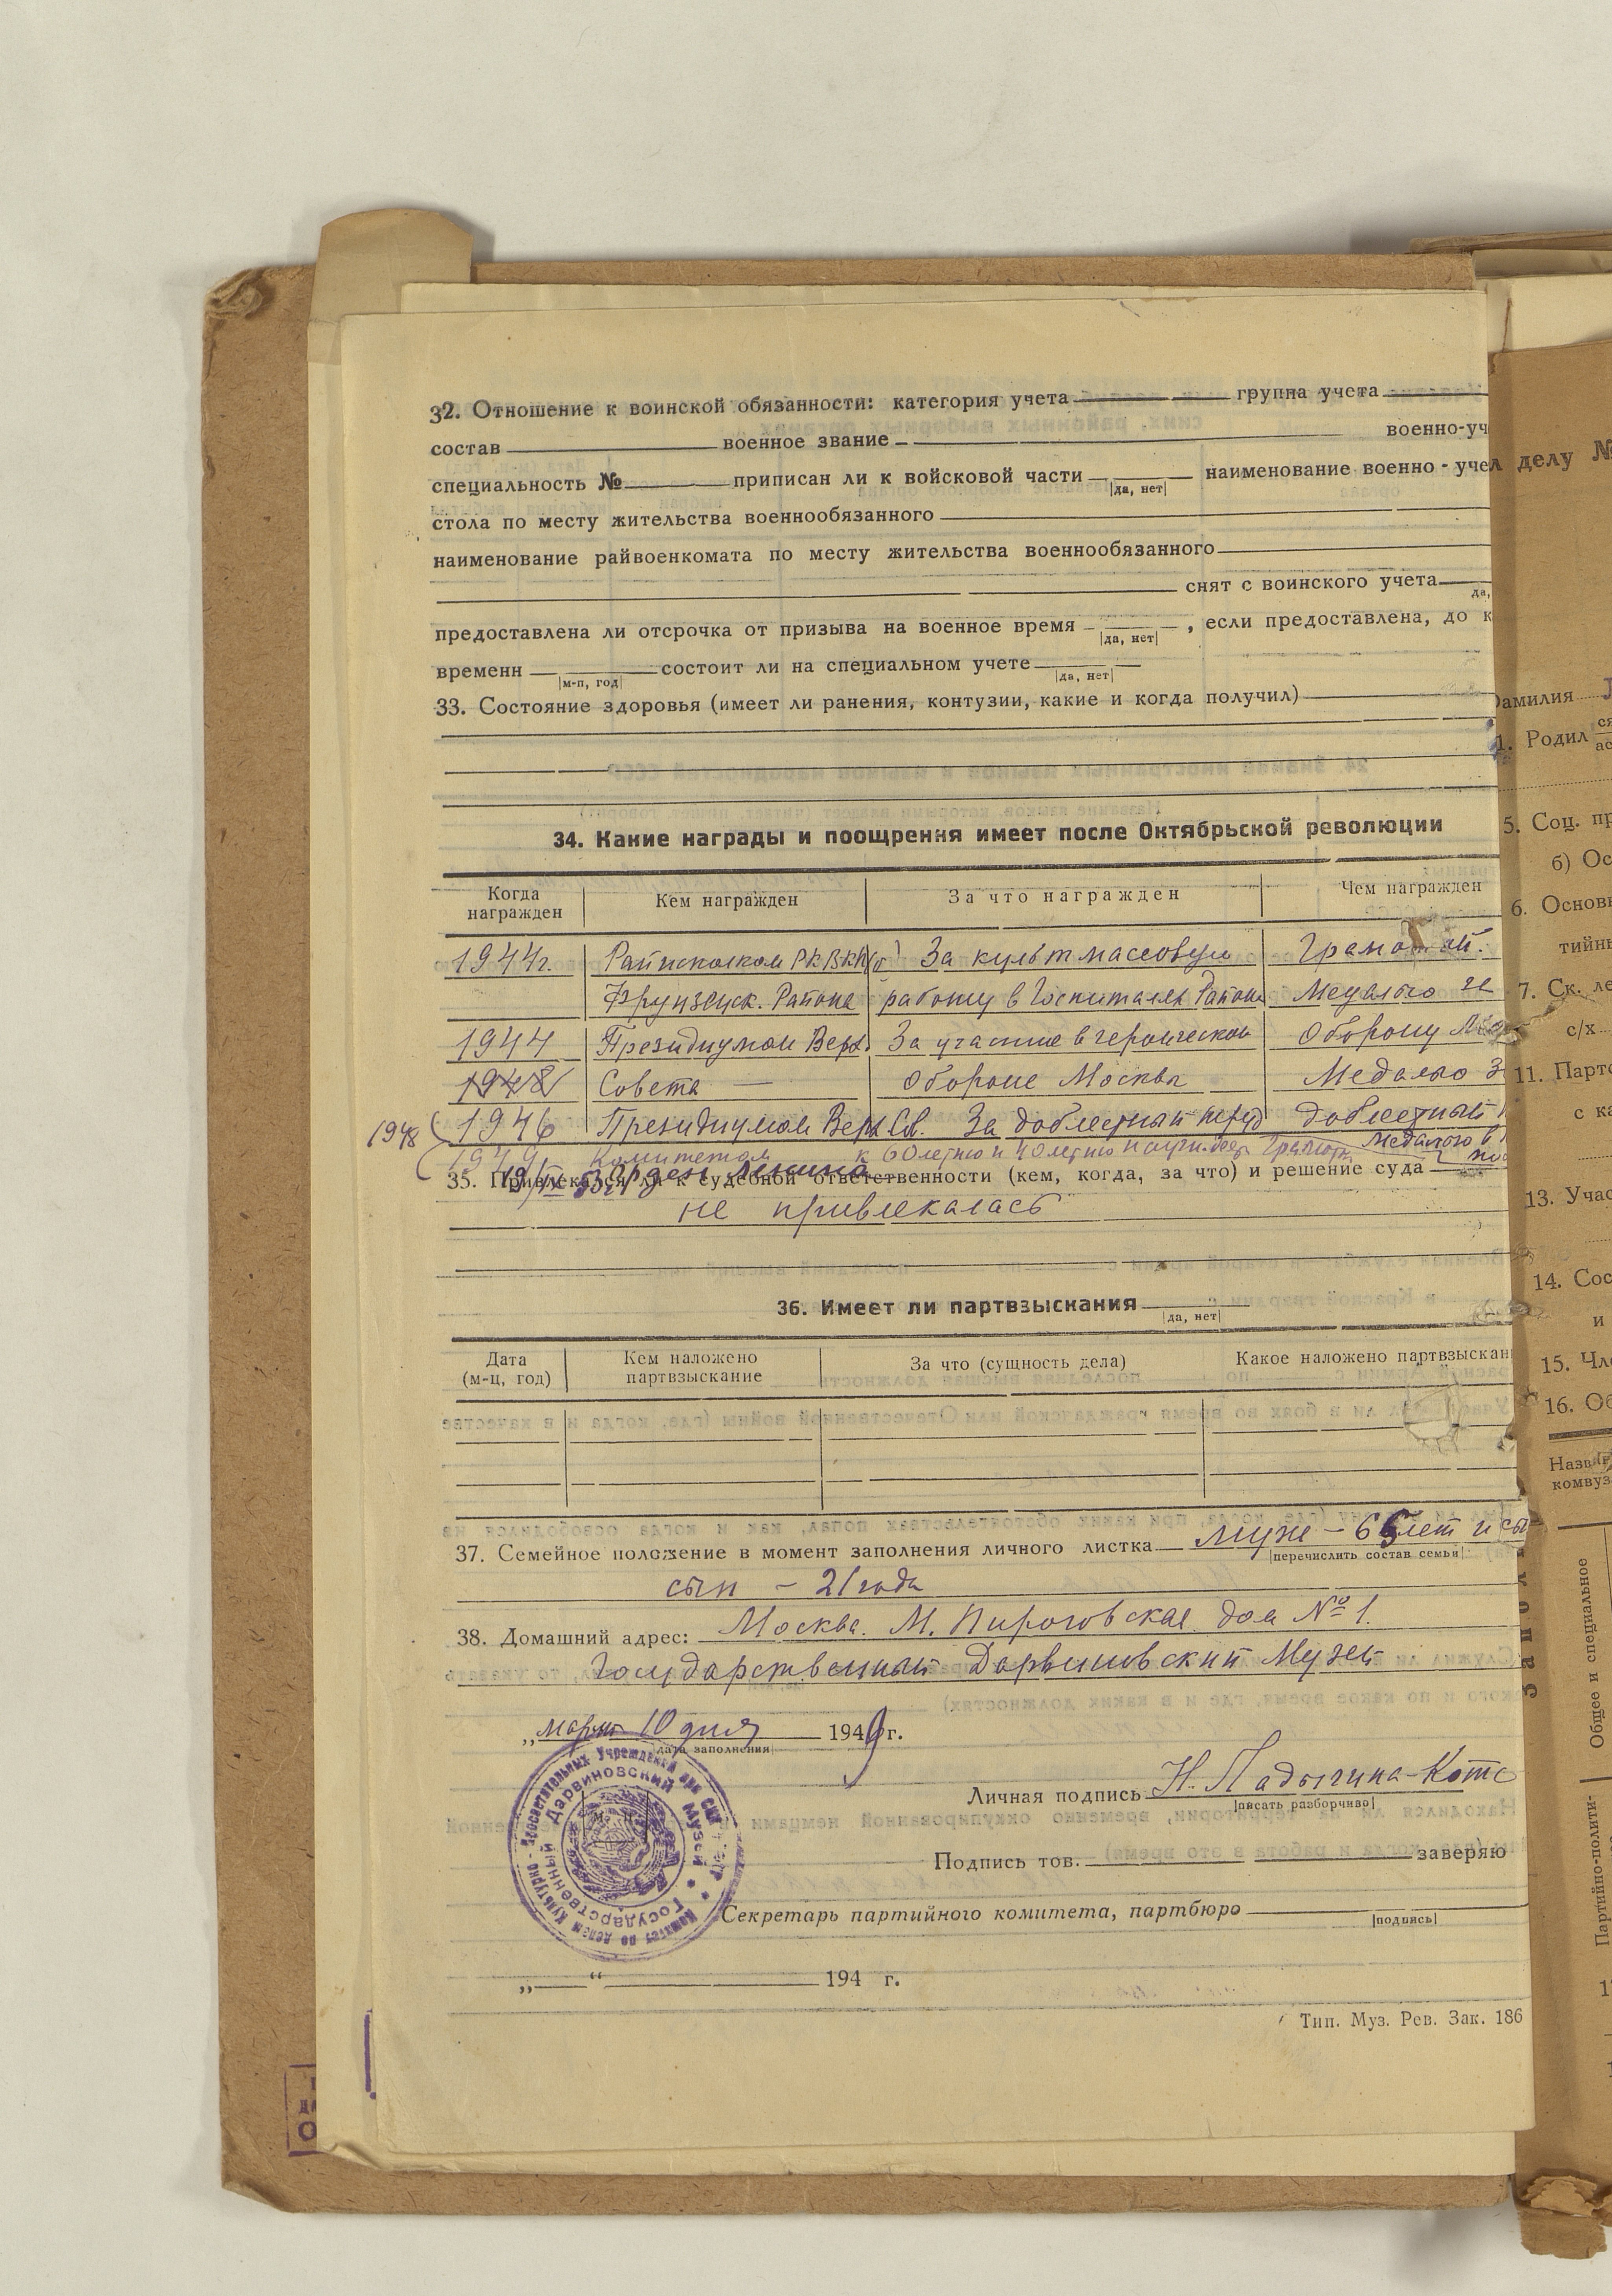 32. Отношение к воинской обязанности: категория учета группа учета
состав военное звание военно-уч
специальность № приписан ли к войсковой части наименование военно-учел
|да, нет|
стола по месту жительства военнообязанного
наименование райвоенкомата по месту жительства военнообязанного
снят с воинского учета
да,
предоставлена ли отсрочка от призыва на военное время , если предоставлена, до к
|да, нет|
временн состоит ли на специальном учете
|м-п, год| |да, нет|
33. Состояние здоровья (имеет ли ранения, контузии, какие и когда получил)
34. Какие награды и поощрения имеет после Октябрьской революции
Когда награжден Кем награжден За что награжден Чем награжден
1944г. Райисполком РКВКП(б) За культмассовую Грамотой.
Фрунзенск. Района работу в Госпиталях Района Медалью
1944 Президиумом Верх. За участие в героической Оборону
1948 Совета — Обороне Москвы Медалью
1948 1946 Президиумом Верх Св. За доблестный труд доблестный
1949 Комитетом к 60летию и 40летию научн. деят. Грамот. Медалью
Орден Ленина
35. Привлекался ли к судебной ответственности (кем, когда, за что) и решение суда
не привлекалась
36. Имеет ли партвзыскания
|да, нет|
Дата (м-ц, год) Кем наложено партвзыскание За что (сущность дела) Какое наложено партвзыскан
37. Семейное положение в момент заполнения личного листка муж – 65 лет и сы
|перечислить состав семьи|
сын – 21 года
38. Домашний адрес: Москва. М. Пироговская дом № 1.
Государственный Дарвиновский Музей
„март 10 дня 1949 г.
|дата заполнения|
Личная подпись Н. Ладыгина-Котс
|писать разборчиво|
Подпись тов. заверяю
Секретарь партийного комитета, партбюро
|подпись|
„ “ 194 г.
Тип. Муз. Рев. Зак. 186
Комитет по делам Культурно-Просветительных Учреждений при
Государственный Дарвиновский Музей
делу №
Фамилия
1. Родил
5. Соц. пр
б) Ос
6. Основн
тийны
7. Ск. ле
с/х
11. Парт
с ка
13. Учас
14. Сос
и
15. Чл
16. Об
Назв
комвуз
Общее и специальное
Партийно-полити-